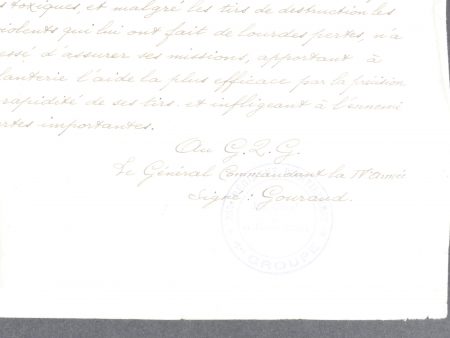 toxiques, et malgré les tirs de destruction les
violents qui lui ont fait de lourdes pertes, n'a
essé d'assurer ses missions, apportant à
fanterie l'aide la plus efficace par la précision
rapidité de ses tirs. et infligeant à l'ennemi
ertes importantes.
Au G.Q.G.
Le Général Commandant la IVe Armée
Signé: Gouraud.
GROUPE